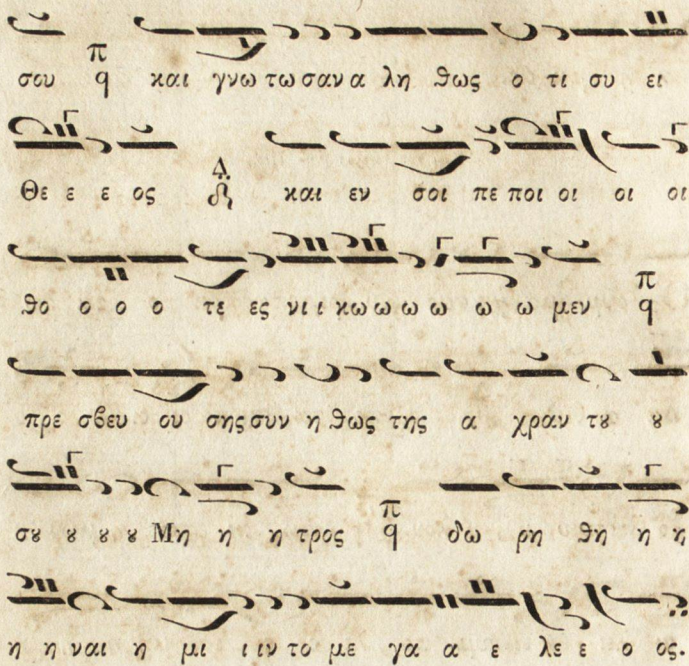 σου π q και γνω τω σαν α λη θως ο τι συ ει
Θε ε ε ος Δ και εν σοι πε ποι οι οι οι οι
θο ο ο ο τε ες νι ι κω ω ω ω ω ω μεν π q
πρε σβευ ου σης συν η θως της α χραν τȣ ȣ
σȣ ȣ ȣ ȣ Μη η η τρος π q δω ρη θη η η
η η ναι η μι ι ιν το με γα α ε λε ε ο ος.